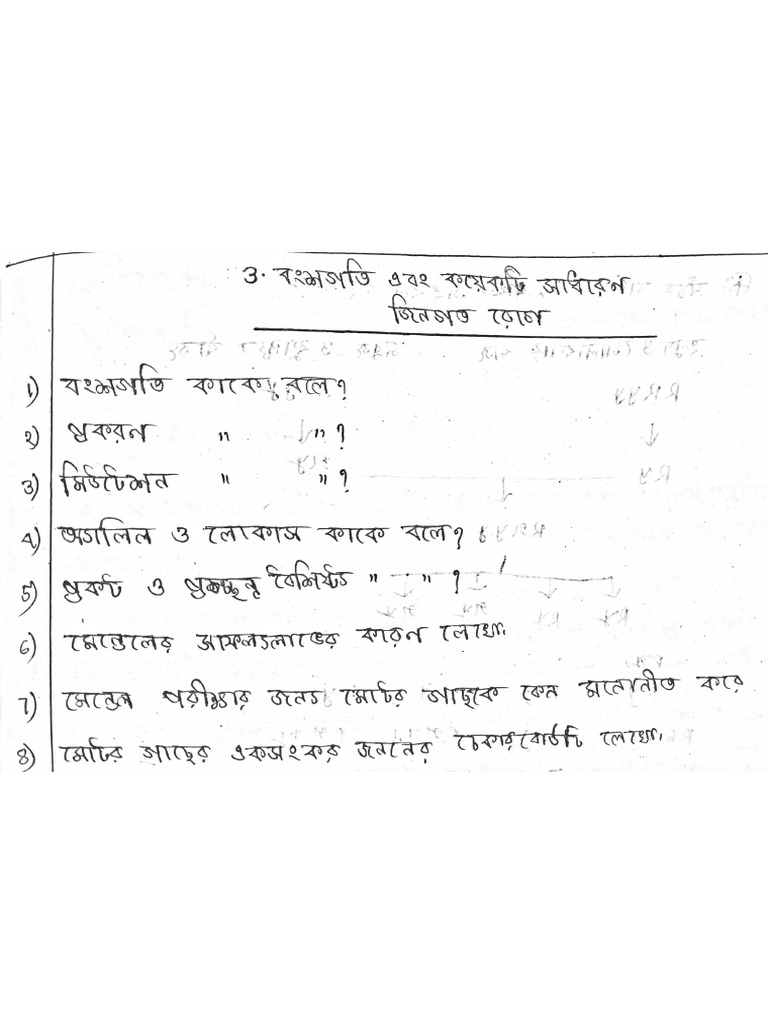 3. বংশগতি এবং কয়েকটি সাধারন
জিনগত রোগ
1) বংশগতি কাকে বলে?
2) প্রকরন " "?
3) মিউটেশন " "?
4) অ্যালিল ও লোকাস কাকে বলে?
5) প্রকট ও প্রচ্ছন্ন বৈশিষ্ট্য " " ?
6) মেন্ডেলের সাফল্যলাভের কারন লেখো।
7) মেন্ডেল পরীক্ষার জন্য মোটর গাছকে কেন মনোনীত করে
8) মোটর গাছের একসংকর জননের চেকারবোর্ডটি লেখো।